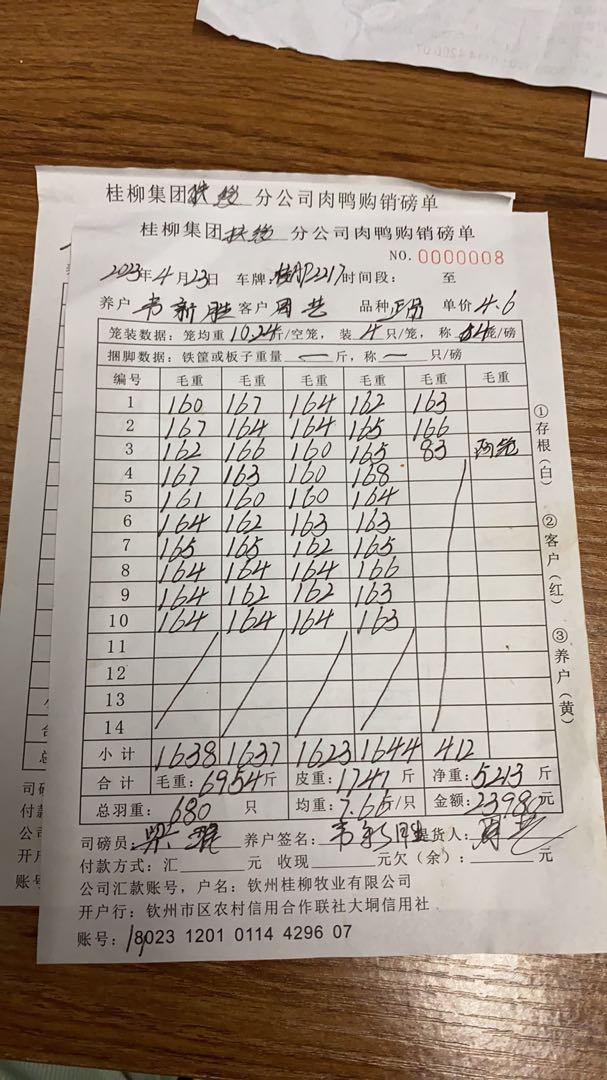 桂柳集团扶绥分公司肉鸭购销磅单
桂柳集团扶绥分公司肉鸭购销磅单
NO. 0000008
2023年4月23日 车牌: 2217 时间段: 至
养户 韦新胜 客户 周艺 品种 正品 单价 4.6
笼装数据: 笼均重 10.24 斤/空笼, 装 4 只/笼, 称 4 笼/磅
捆脚数据: 铁筐或板子重量 — 斤, 称 — 只/磅
编号 毛重 毛重 毛重 毛重 毛重 毛重
1 160 167 164 162 163
2 167 164 164 165 166
3 162 166 160 165 83 两笼
4 167 163 160 168
5 161 160 160 164
6 164 162 163 163
7 165 165 162 165
8 164 164 164 166
9 164 162 162 163
10 164 164 164 163
11
12
13
14
小计 1638 1637 1623 1644 412
合计 毛重: 6954 斤 皮重: 1741 斤 净重: 5213 斤
总羽重: 680 只 均重: 7.66 斤/只 金额: 23980 元
司磅员: 梁 养户签名: 韦新胜 提货人: 周艺
付款方式: 汇 元 收现 元欠(余): 元
公司汇款账号, 户名: 钦州桂柳牧业有限公司
开户行: 钦州市区农村信用合作联社大垌信用社
账号: 8023 1201 0114 4296 07
①存根(白)
②客户(红)
③养户(黄)
司磅
付款
公司
开户
账号